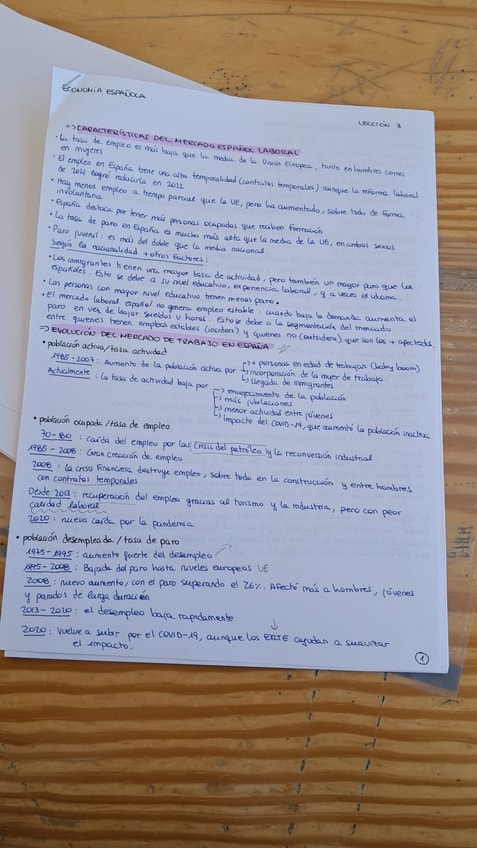 ECONOMÍA ESPAÑOLA
LECCIÓN 3
=> CARACTERÍSTICAS DEL MERCADO ESPAÑOL LABORAL
• La tasa de empleo es más baja que la media de la Unión Europea, tanto en hombres como
en mujeres
• El empleo en España tiene una alta temporalidad (contratos temporales) aunque la reforma laboral
de 2021 logró reducirla en 2022
• Hay menos empleo a tiempo parcial que la UE, pero ha aumentado, sobre todo de forma
involuntaria
• España destaca por tener más personas ocupadas que reciben formación
• La tasa de paro en España es mucho más alta que la media de la UE, en ambos sexos
• Paro juvenil: es más del doble que la media nacional.
Según la nacionalidad + otros factores:
• Los inmigrantes tienen una mayor tasa de actividad, pero también un mayor paro que los
españoles. Esto se debe a su nivel educativo, experiencia laboral, y a veces el idioma.
• Las personas con mayor nivel educativo tienen menos paro.
• El mercado laboral español no genera empleo estable: cuando baja la demanda aumenta el
paro en vez de bajar sueldos u horas. Esto se debe a la segmentación del mercado
entre quienes tienen empleos estables (insiders) y quienes no (outsiders) que son los + afectados
=> EVOLUCIÓN DEL MERCADO DE TRABAJO EN ESPAÑA
• población activa/tasa actividad
1985-2007: Aumento de la población activa por
→ + personas en edad de trabajar (baby boom)
→ incorporación de la mujer de trabajo
→ llegada de inmigrantes
Actualmente: la tasa de actividad baja por
→ envejecimiento de la población
→ más jubilaciones
→ menor actividad entre jóvenes
→ impacto del COVID-19, que aumentó la población inactiva
• población ocupada/tasa de empleo
70-80: caída del empleo por las crisis del petróleo y la reconversión industrial
1985-2008: Gran creación de empleo
2008: la crisis financiera destruye empleo, sobre todo en la construcción y entre hombres
con contratos temporales
Desde 2013: recuperación del empleo gracias al turismo y la industria, pero con peor
calidad laboral
2020: nueva caída por la pandemia
• población desempleada/tasa de paro
1975-1995: aumento fuerte del desempleo
1995-2008: Bajada del paro hasta niveles europeos UE
2008: nuevo aumento, con el paro superando el 26%. Afectó más a hombres, jóvenes
y parados de larga duración
2013-2020: el desempleo baja rapidamente
↓
2020: Vuelve a subir por el COVID-19, aunque los ERTE ayudan a suavizar
el impacto.
1